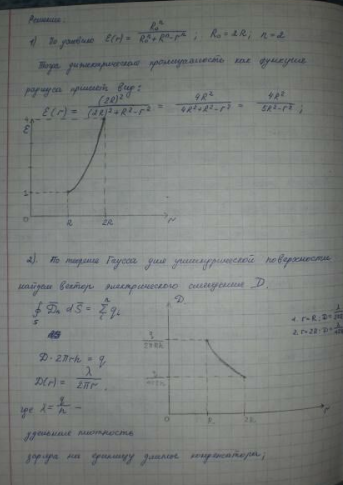 Решение.
1) По условию ε(r) = R₀ⁿ / (R₀ⁿ + Rⁿ - rⁿ) ; R₀ = 2R ; n = 2
Тогда диэлектрическая проницаемость как функция
радиуса примет вид:
ε(r) = (2R)² / ((2R)² + R² - r²) = 4R² / (4R² + R² - r²) = 4R² / (5R² - r²) ;
ε
4
1
R 2R r
2). По теореме Гаусса для цилиндрической поверхности
найдем вектор электрического смещения D.
∮ Dₙ dS = Σ qᵢ
S
D
D · 2πrh = q
1. r = R ; D =
2. r = 2R ; D =
D(r) = λ / 2πr ,
где λ = q / h –
R 2R r
плотность
заряда на единицу длины конденсатора,